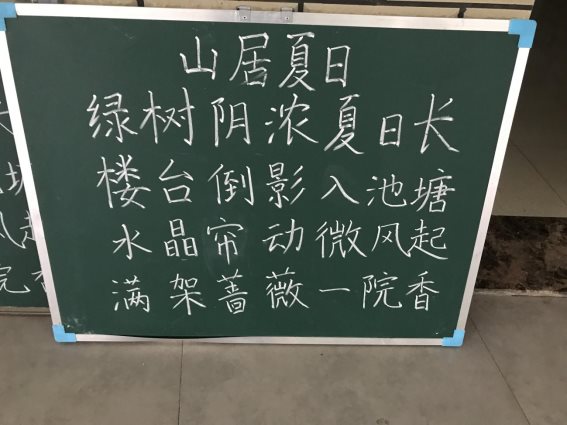 山居夏日
绿树阴浓夏日长
楼台倒影入池塘
水晶帘动微风起
满架蔷薇一院香